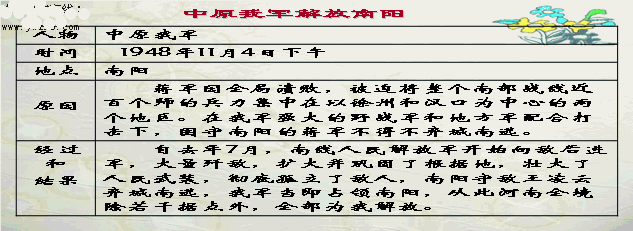 中原我军解放南阳
www.
人物 中原我军
时间 1948年11月4日下午
地点 南阳
原因 蒋军因全局溃败，被迫将整个南部战线近
百个师的兵力集中在以徐州和汉口为中心的两
个地区。在我军强大的野战军和地方军配合打
击下，困守南阳的蒋军不得不弃城南逃。
经过 自去年7月，南线人民解放军开始向敌后进
和 军，大量歼敌，扩大并巩固了根据地，壮大了
结果 人民武装，彻底孤立了敌人，南阳守敌王凌云
弃城南逃，我军当即占领南阳，从此河南全境
除若干据点外，全部为我解放。